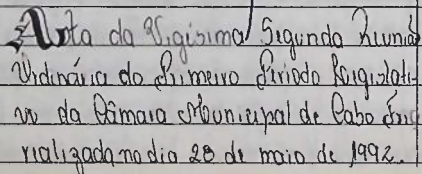 Ata da Vigisima Segunda Reuniã
Ordinária do Primeiro Periodo Legislati-
vo da Câmara Municipal de Cabo Frio
realizada no dia 28 de maio de 1992.